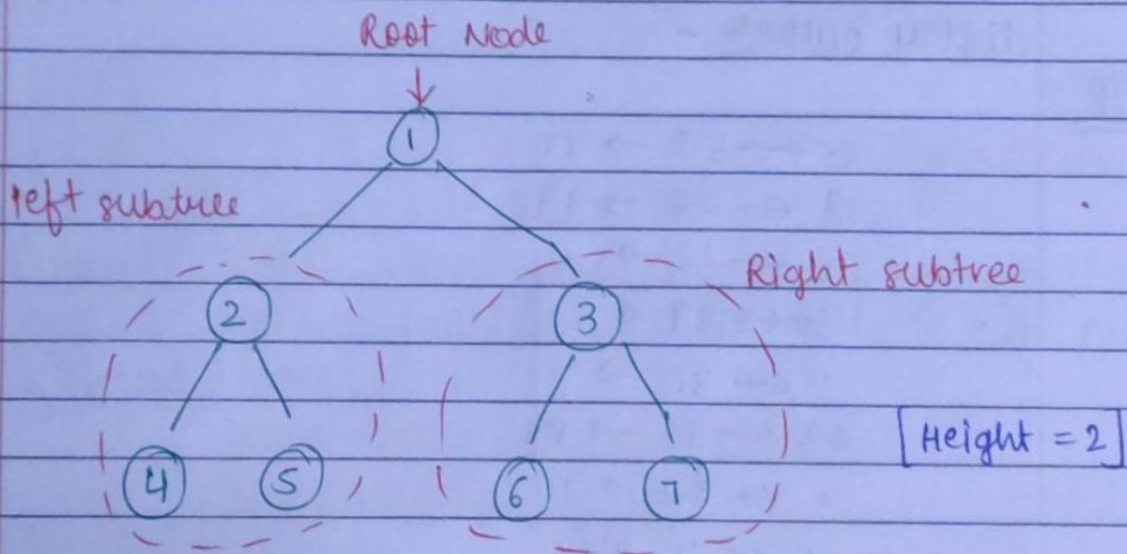 Root Node
1
left subtree
Right subtree
2
3
[Height = 2]
4
5
6
7